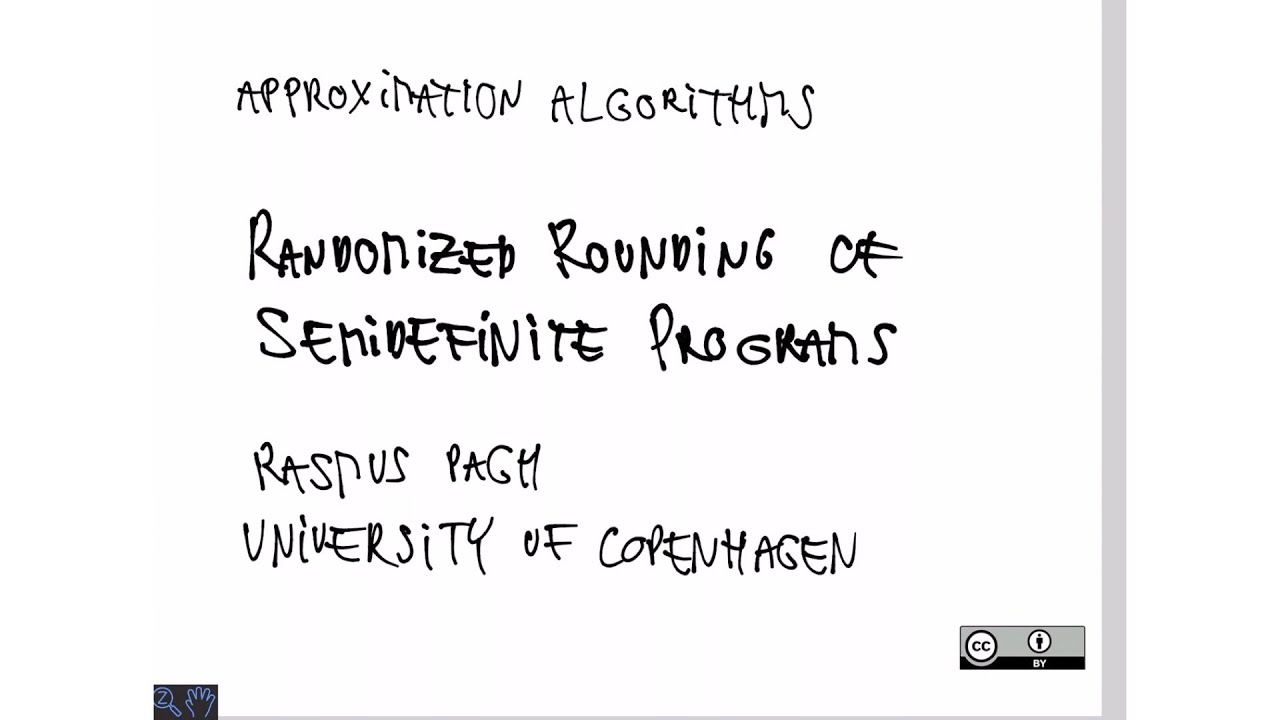 APPROXiMATION ALGORiTHMS
RANDOMiZED ROUNDiNG OF
SEMiDEFiNiTE PROGRAMS
RASMUS PAGH
UNiVERSiTY OF COPENHAGEN
CC
BY
Z